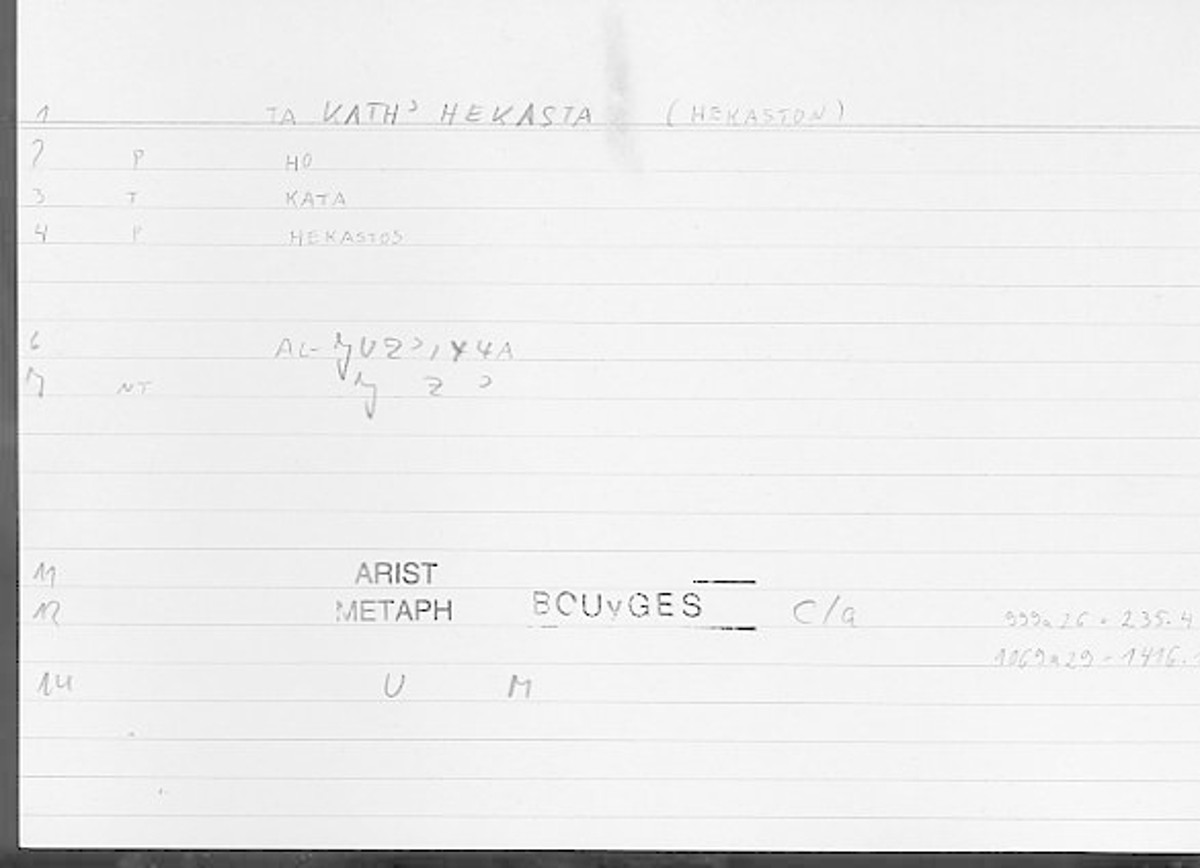 1 TA KATH' HEKASTA (HEKASTON)
2 P HO
3 T KATA
4 P HEKASTOS
6 AL-
7 NT
11 ARIST
12 METAPH BOUyGES C/a 999a26 - 235.4
1069a29 - 1416.1
14 U M